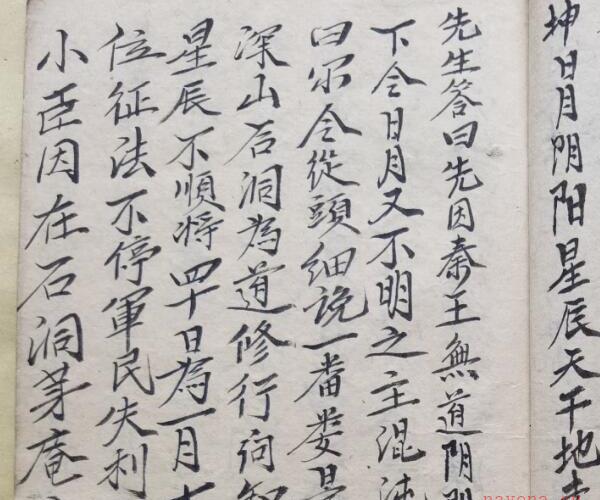 坤日月阴阳星辰天干地
先生答曰先因秦王無道阴阳
下令日月又不明之主混沌
曰尔今從頭细说一番娄景
深山石洞為道修行向知
星辰不順将四十日為一月
位征法不停軍民失利
小臣因在石洞茅庵